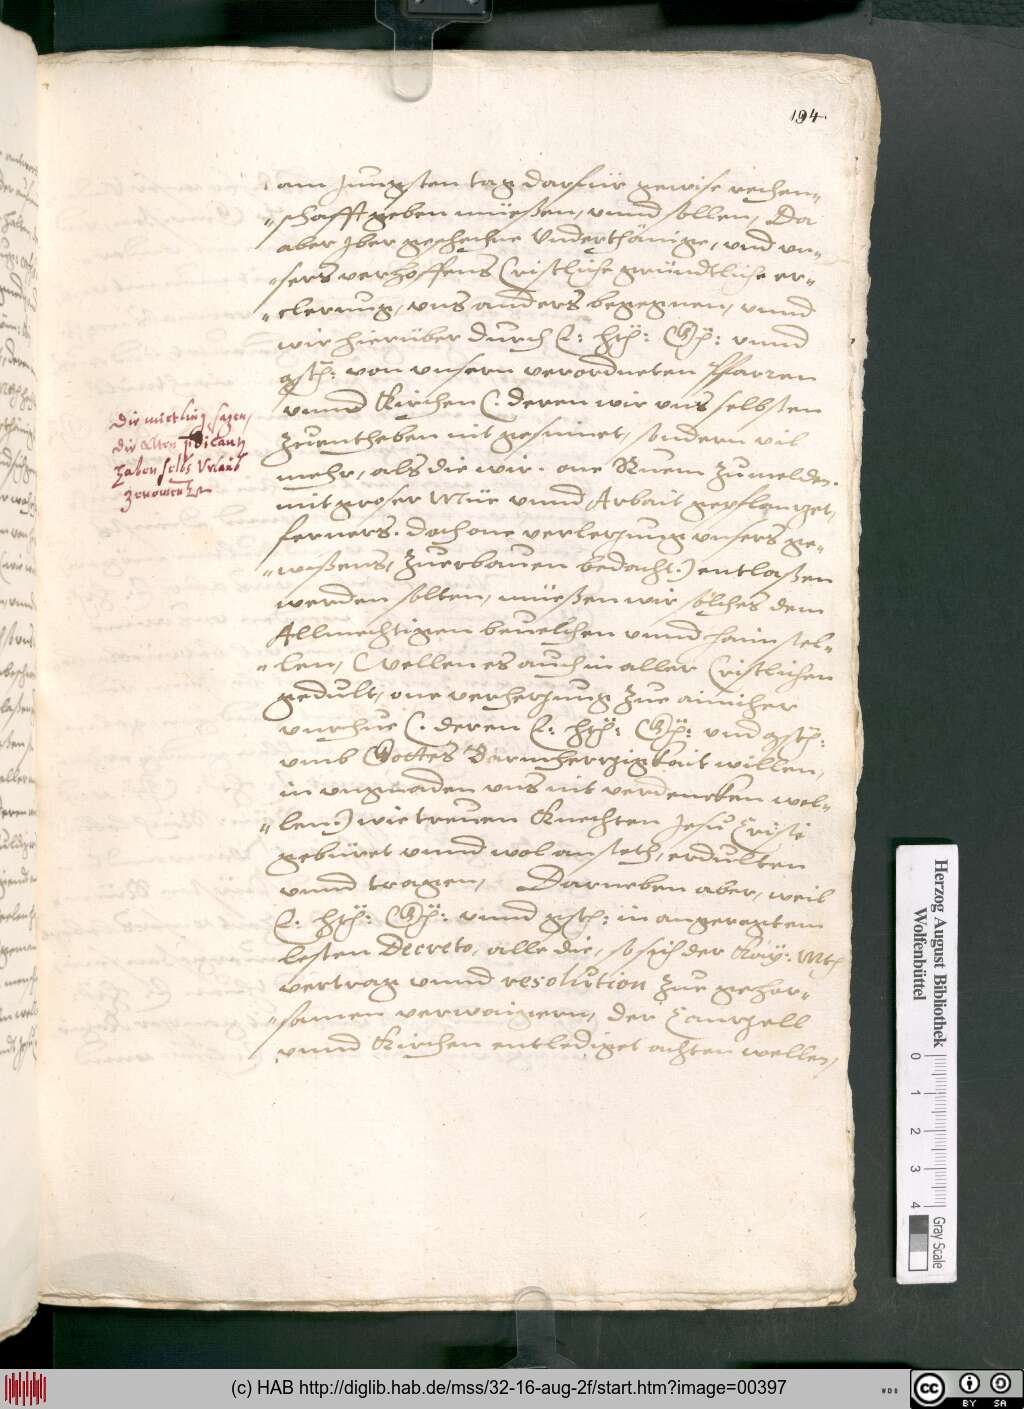 194.
am Jungsten tag darfür gewise rechen„
„schafft geben müeßen, vnnd sollen, Da
aber Iber geschechne Vnderthänige, vnd vn„
„sers verhoffens Cristliche gründtliche er„
„clerung, vns anders begegnen, vnnd
wir hierüber durch E: hftg: Gg: vnnd
gst: von vnsern verordneten Pfarren
vnnd Kirchen (. deren wir vns selbsten
zuentheben nit gesinnet, sondern vil
mehr, als die wir. one Ruem zumelden.
mit groser Müe vnnd Arbait gepflantzet,
ferners. doch one verletzung vnsers ge„
„wißens, zuerbauen bedacht.) entlaßen
werden solten, müeßen wir sölches dem
Allmechtigen beuelchen vnnd haimstel„
„len, Wellen es auch in aller Cristlichen
gedult, one verhetzung zue ainicher
vnrhue (. deren E: hftg: Gg: vnd gst:
vmb Gottes Barmhertzigkait willen,
in vngnaden vns nit verdencken wol„
„len.) wie treuen Knechten Jesu Cristi
gebüret vnnd wol ansteth, erdulten
vnnd tragen, Darneben aber, weil
E: hftg: Gg: vnnd gst: in angeregtem
lesten Decreto, alle die, so sich der Kay: Mt:
vertrag vnnd resolution zue gehor„
„samen verwaigern, der Cantzell
vnnd Kirchen entlediget achten wellen,
Die neitling sagen,
die alten predicantn
haben selbs Vrlaub
genomen
Herzog August Bibliothek
Wolfenbüttel
0 1 2 3 4
Gray Scale
(c) HAB http://diglib.hab.de/mss/32-16-aug-2f/start.htm?image=00397
WDB
cc BY SA